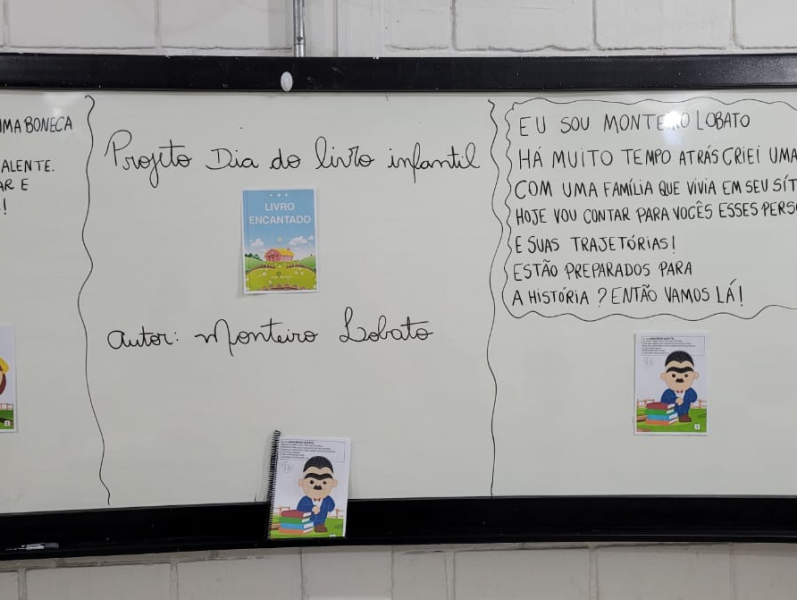 UMA BONECA
ALENTE.
AR E
!
Projeto Dia do livro infantil
LIVRO
ENCANTADO
autor: Monteiro Lobato
EU SOU MONTEIRO LOBATO
HÁ MUITO TEMPO ATRÁS CRIEI UMA
COM UMA FAMÍLIA QUE VIVIA EM SEU SÍT
HOJE VOU CONTAR PARA VOCÊS ESSES PERSO
E SUAS TRAJETÓRIAS!
ESTÃO PREPARADOS PARA
A HISTÓRIA? ENTÃO VAMOS LÁ!